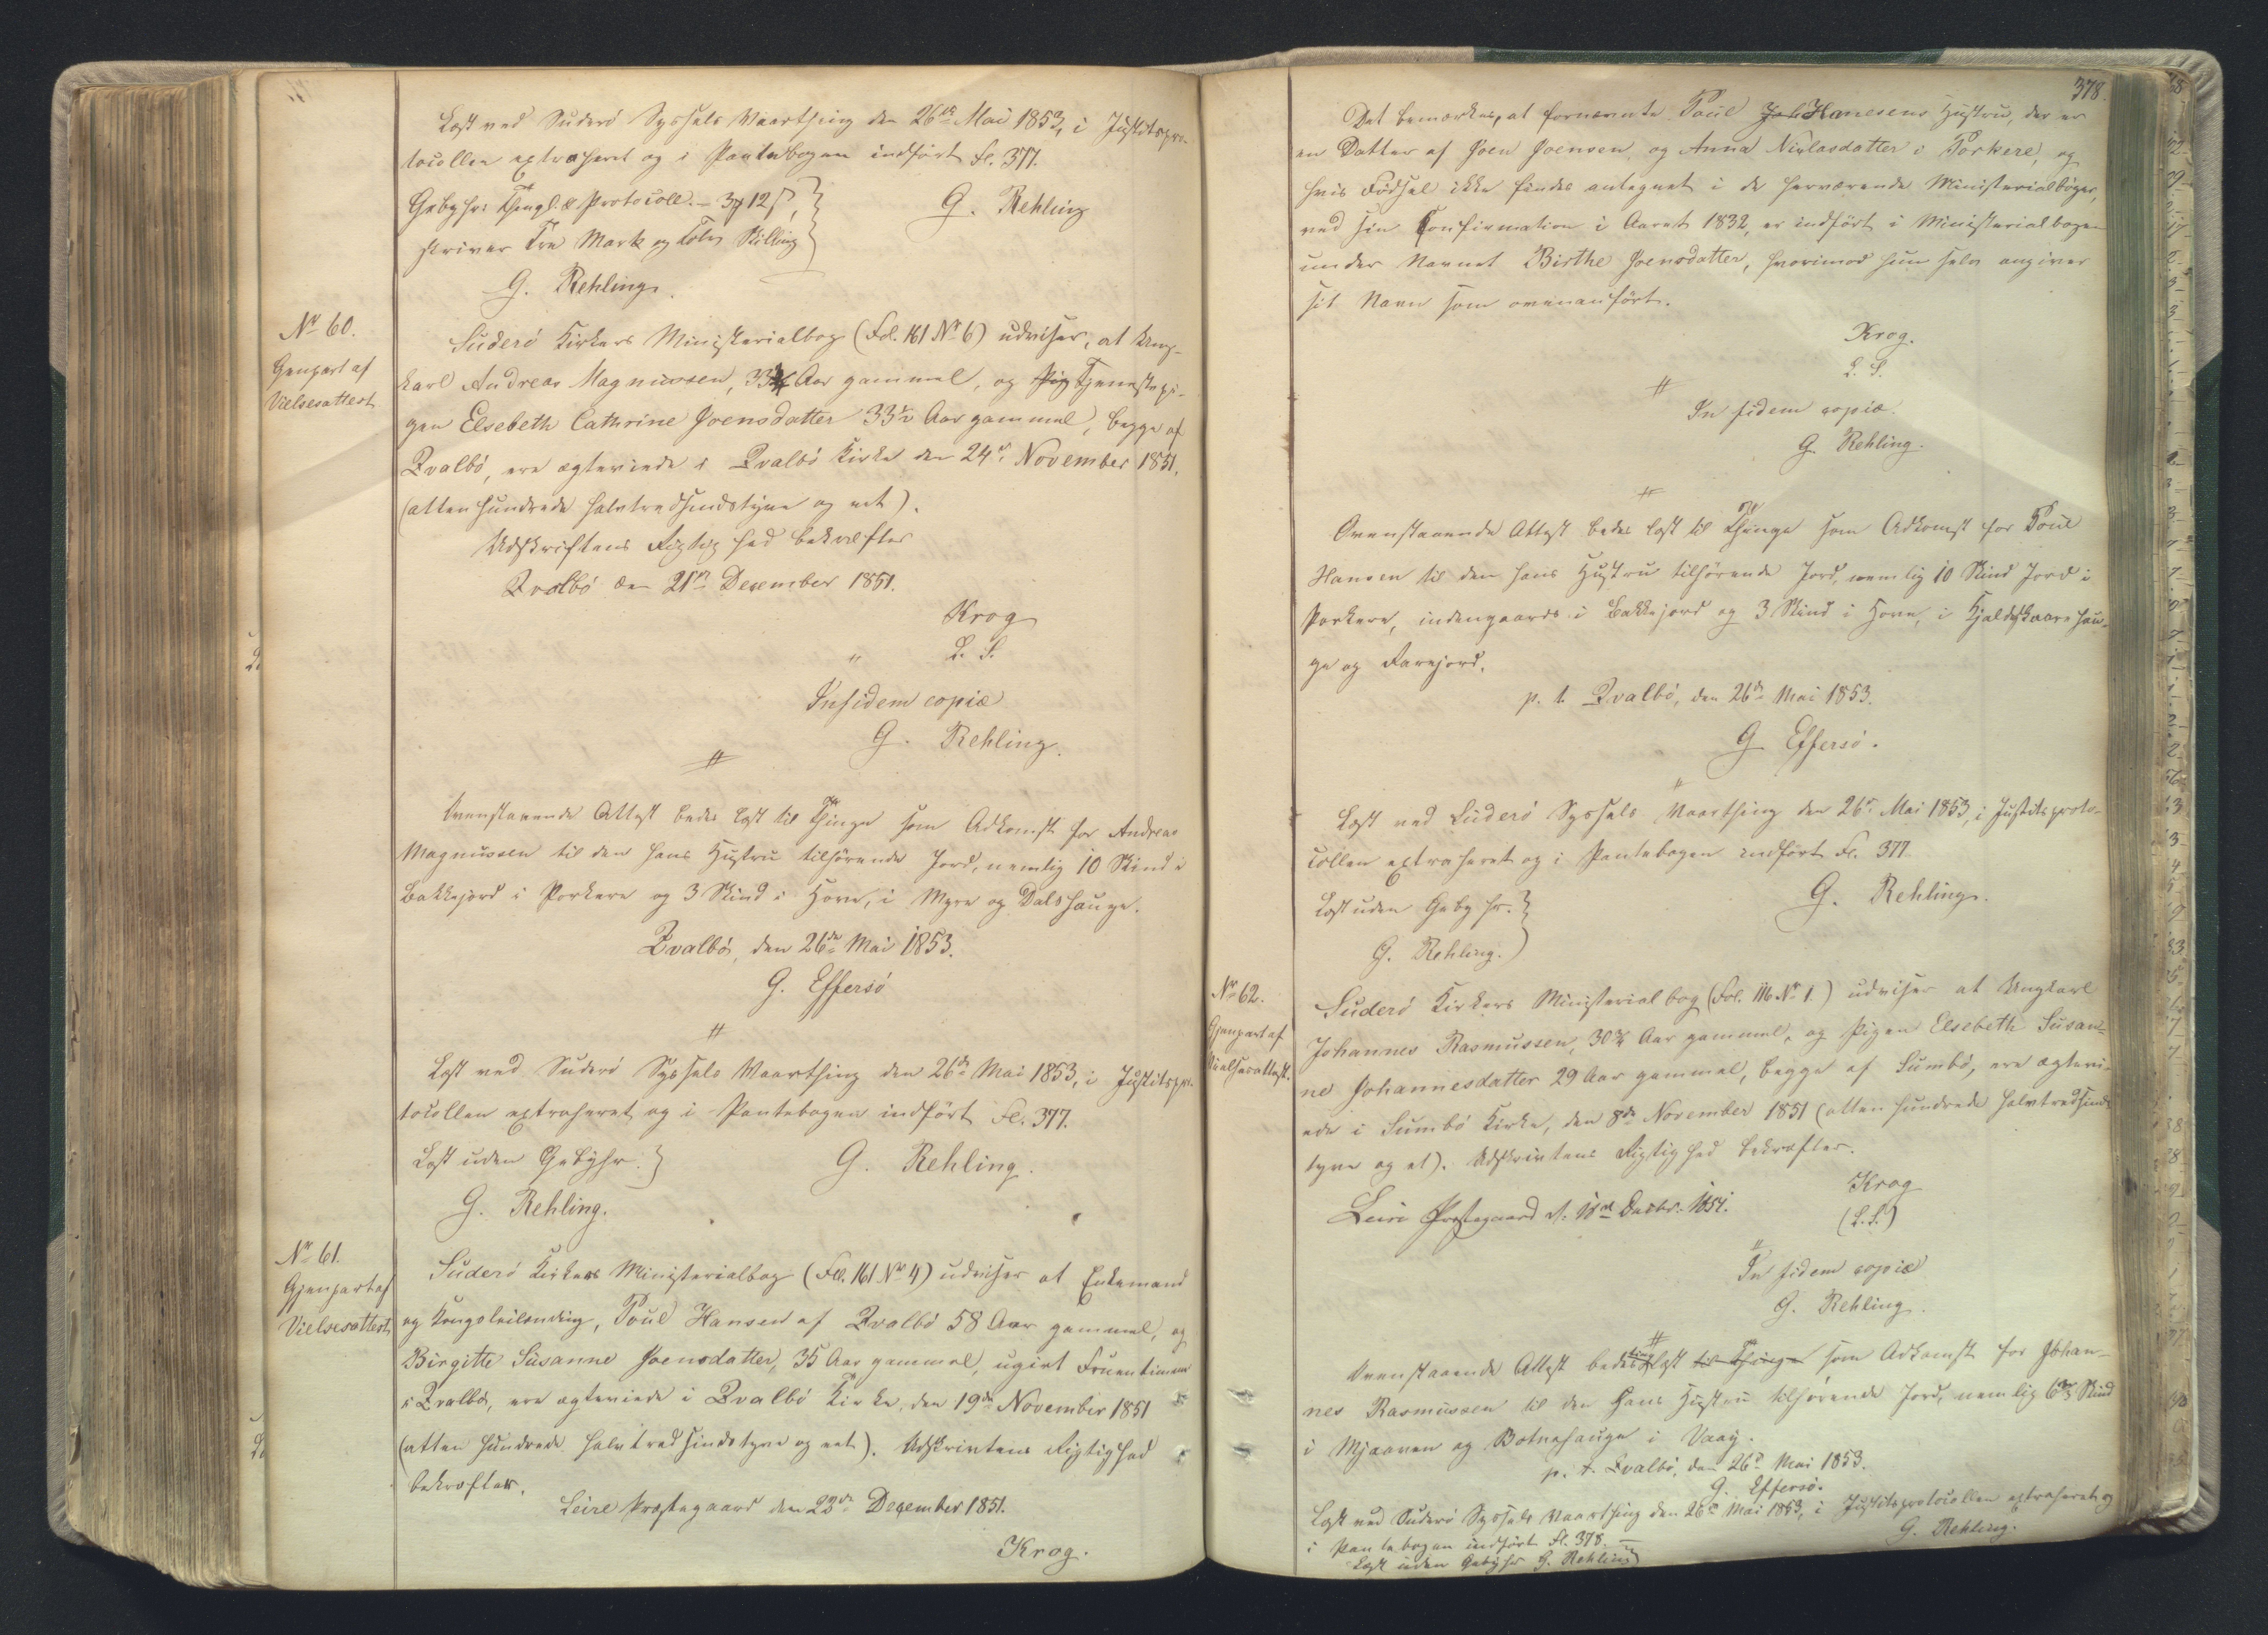 Læst ved Suderö Syssels Vaarthing den 26de Mai 1853, i Justitspro-
tocollen extraheret og i Pantebogen indfört Fl. 377.
Gebyhr: Thingl. & Protocoll. - 3 12
skriver Tre Mark og Tolv Skilling
G. Rehling
G. Rehling.
No 60.
Genpart af
Vielsesattest
Suderö Kirkers Ministerialbog (Fol. 161 No 6) udviser, at Ung-
karl Andreas Magnussen, 33 Aar gammel, og Tjenestepi-
gen Elsebeth Cathrine Joensdatter 33½ Aar gammel, begge af
Qvalbö, ere ægteviede i Qvalbö Kirke den 24de November 1851.
(atten hundrede halvtredsindstyve og eet).
Udskriftens Rigtighed bekræfter
Qvalbö den 21de December 1851.
Krog
L. S.
In fidem copiæ
G. Rehling.
Ovenstaaende Attest bedes læst til Thinge som Adkomst for Andreas
Magnussen til den hans Hustru tilhörende Jord, nemlig 10 Skind i
Bakkejord i Porkere og 3 Skind i Hove, i Myre og Dalshauge.
Qvalbö, den 26de Mai 1853.
G. Effersö
Læst ved Suderö Syssels Vaarthing den 26de Mai 1853, i Justitspro-
tocollen extraheret og i Pantebogen indfört Fl. 377.
Læst uden Gebyhr.
G. Rehling.
G. Rehling.
No 61.
Gjenpart af
Vielsesattest
Suderö Kirkers Ministerialbog (Fol. 161 No 4) udviser at Enkemand
og Kongsleilending, Poul Hansen af Qvalbö 58 Aar gammel, og
Birgitte Susanne Joensdatter, 35 Aar gammel, ugivt Fruentimmer
i Qvalbö, ere ægteviede i Qvalbö Kirke, den 19de November 1851
(atten hundrede halvtredsindstyve og eet). Udskrivtens Rigtighed
bekræfter.
Leire Præstegaard den 23de December 1851.
Krog.
378.
Det bemærkes, at fornævnte Poul Joh Hansens Hustru, der er
en Datter af Joen Joensen og Anna Niclasdatter i Porkere, og
hvis Födsel ikke findes antegnet i de herværende Ministerialböger,
ved sin Confirmation i Aaret 1832, er indfört i Ministerialbogen
under Navnet Birthe Joensdatter, hvorimod hun selv angiver
sit Navn som ovenanfört.
Krog.
L. S.
In fidem copiæ.
G. Rehling.
Ovenstaaende Attest bedes læst til Thinge som Adkomst for Poul
Hansen til den hans Hustru tilhörende Jord, nemlig 10 Skind Jord i
Porkere, indengaards i Bakkejord og 3 Skind i Hove, i Hjaldskaarehau-
ge og Rarejord.
p. t. Qvalbö, den 26de Mai 1853.
G. Effersö.
Læst ved Suderö Syssels Vaarthing den 26de Mai 1853, i Justitsproto-
collen extraheret og i Pantebogen indfört Fl. 377
Læst uden Gebyhr.
G. Rehling.
G. Rehling.
No 62.
Gjenpart af
Vielsesattest.
Suderö Kirkers Ministerialbog (Fol. 116 No 1.) udviser at Ungkarl
Johannes Rasmussen, 30¾ Aar gammel, og Pigen Elsebeth Susan-
ne Johannesdatter 29 Aar gammel, begge af Sumbö, ere ægtevi-
ede i Sumbö Kirke, den 8de November 1851 (atten hundrede halvtredsinds
tyve og et). Udskrivtens Rigtighed bekræfter.
Leire Præstegaard d. 18de Decbr. 1851.
Krog
(L. S.)
In fidem copiæ
G. Rehling.
Ovenstaaende Attest bedes læst til Thinge som Adkomst for Johan-
nes Rasmussen til den hans Hustru tilhörende Jord, nemlig 6⅔ Skind
i Mjaaven og Botnehauge i Vaag.
p. t. Qvalbö, den 26de Mai 1853.
G. Effersö.
Læst ved Suderö Syssels Vaarthing den 26de Mai 1853, i Justitsprotocollen extraheret og
i Pantebogen indfört Fl. 378.
G. Rehling.
Læst uden Gebyhr G. Rehling